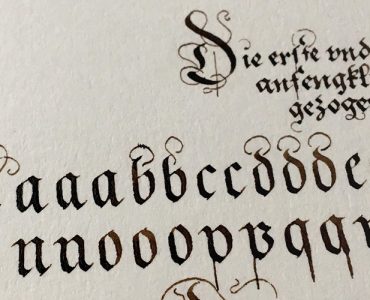 Die erste vnd
anfengkl
gezoge
aaabbccddde
nnooopppqqr